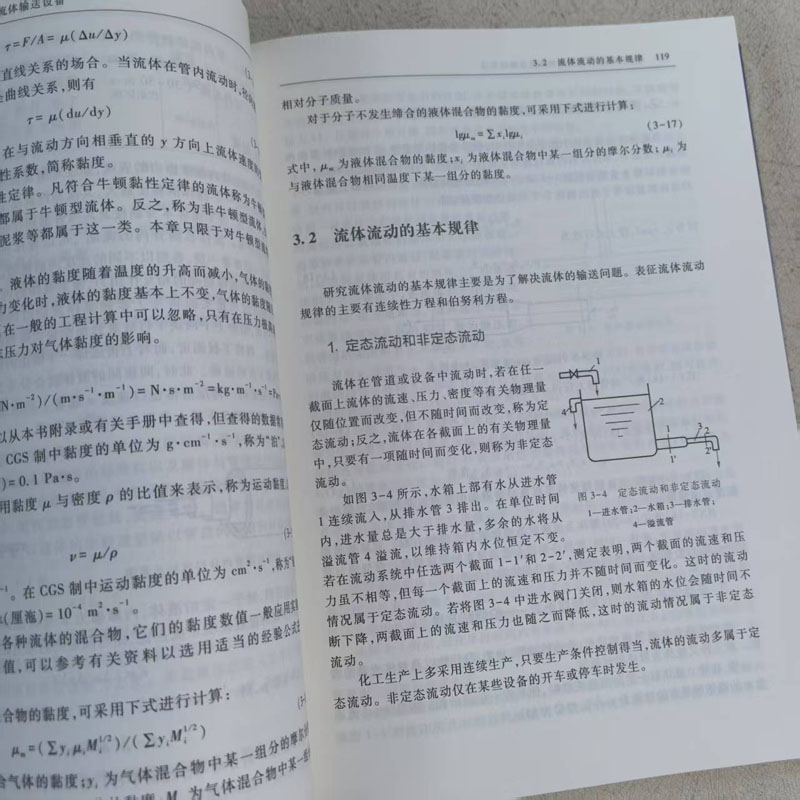 流体输送设备
τ=F/A= μ(Δu/Δy)
直线关系的场合。当流体在管内流动时,
曲线关系,则有
τ = μ(du/dy)
在与流动方向相垂直的 y 方向上流体速度
性系数,简称黏度。
性定律。凡符合牛顿黏性定律的流体称为牛顿
都属于牛顿型流体。反之,称为非牛顿型流体,
泥浆等都属于这一类。本章只限于对牛顿型
液体的黏度随着温度的升高而减小,气体的
力变化时,液体的黏度基本上不变,气体的黏度随
在一般的工程计算中可以忽略,只有在压力极高
压力对气体黏度的影响。
N·m⁻²)/(m·s⁻¹·m⁻¹)= N·s·m⁻²=kg·m⁻¹·s⁻¹=Pa
以从本书附录或有关手册中查得,但查得的数据
CGS 制中黏度的单位为 g·cm⁻¹·s⁻¹,称为“泊”
)= 0.1 Pa·s。
用黏度 μ 与密度 ρ 的比值来表示,称为运动黏度
ν = μ/ρ
⁻¹。在 CGS 制中运动黏度的单位为 cm²·s⁻¹,称为
(厘沲)= 10⁻⁴ m²·s⁻¹。
各种流体的混合物,它们的黏度数值一般应用实
值,可以参考有关资料以选用适当的经验公式
合物的黏度,可采用下式进行计算:
μₘ=(∑yᵢμᵢMᵢ^1/2)/(∑yᵢMᵢ^1/2)
合气体的黏度;yᵢ 为气体混合物中某一组分的摩尔
为气体混合物中某一
3.2 流体流动的基本规律 119
相对分子质量。
对于分子不发生缔合的液体混合物的黏度,可采用下式进行计算:
lgμₘ=∑xᵢlgμᵢ (3-17)
式中,μₘ 为液体混合物的黏度;xᵢ 为液体混合物中某一组分的摩尔分数;μᵢ 为
与液体混合物相同温度下某一组分的黏度。
3.2 流体流动的基本规律
研究流体流动的基本规律主要是为了解决流体的输送问题。表征流体流动
规律的主要有连续性方程和伯努利方程。
1. 定态流动和非定态流动
流体在管道或设备中流动时,若在任一
截面上流体的流速、压力、密度等有关物理量
仅随位置而改变,但不随时间而改变,称为定
态流动;反之,流体在各截面上的有关物理量
中,只要有一项随时间而变化,则称为非定态
流动。
如图 3-4 所示,水箱上部有水从进水管
1 连续流入,从排水管 3 排出。在单位时间
内,进水量总是大于排水量,多余的水将从
溢流管 4 溢流,以维持箱内水位恒定不变。
若在流动系统中任选两个截面 1-1′和 2-2′,测定表明,两个截面的流速和压
力虽不相等,但每一个截面上的流速和压力并不随时间而变化。这时的流动
情况属于定态流动。若将图 3-4 中进水阀门关闭,则水箱的水位会随时间不
断下降,两截面上的流速和压力也随之而降低,这时的流动情况属于非定态
流动。
化工生产上多采用连续生产,只要生产条件控制得当,流体的流动多属于定
态流动。非定态流动仅在某些设备的开车或停车时发生。
1
2
4
1
3
2
1′
2′
图 3-4 定态流动和非定态流动
1—进水管;2—水箱;3—排水管;
4—溢流管